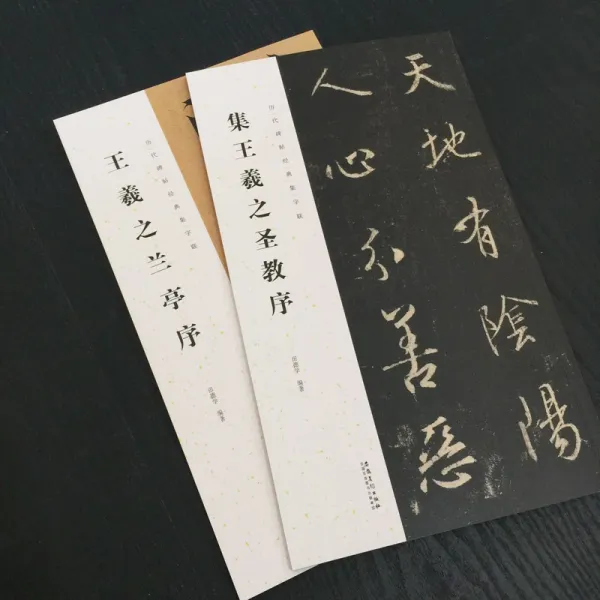 历代碑帖经典集字联
王羲之兰亭序
历代碑帖经典集字联
集王羲之圣教序
编著
天地有陰陽
人心分善惡
安徽美术出版社